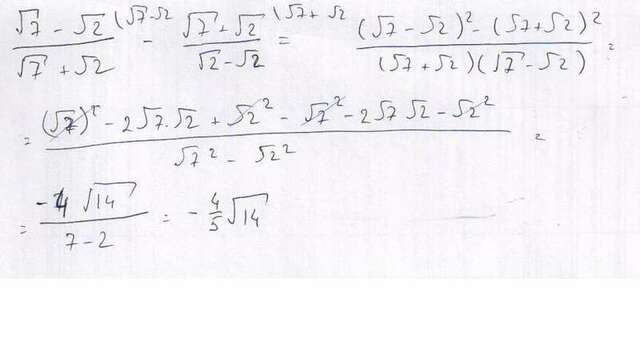 (√7 - √2)/(√7 + √2) (√7-√2 - (√7 + √2)/(√2 - √2) (√7+ √2 = ((√7 - √2)² - (√7+√2)²)/((√7+√2)(√7 - √2)) =
= ((√7)² - 2√7.√2 + √2² - √7² - 2√7 √2 - √2²)/(√7² - √2²) =
= (-4 √14)/(7-2) = - 4/5 √14